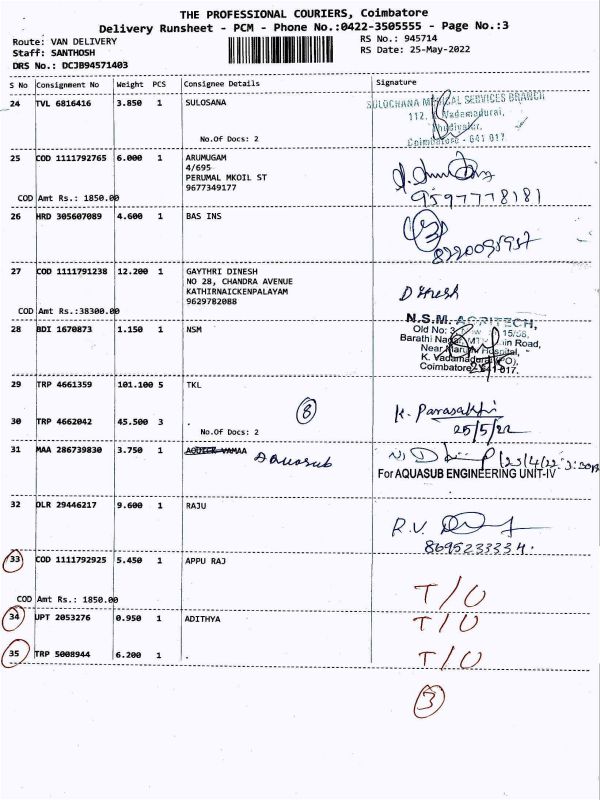 THE PROFESSIONAL COURIERS, Coimbatore
Delivery Runsheet - PCM - Phone No.:0422-3505555 - Page No.:3
Route: VAN DELIVERY RS No.: 945714
Staff: SANTHOSH RS Date: 25-May-2022
DRS No.: DCJB94571403
S No Consignment No Weight PCS Consignee Details Signature
24 TVL 6816416 3.850 1 SULOSANA
No.Of Docs: 2
SULOCHANA MEDICAL SERVICES BRANCH
112, Vadamadurai,
Thudiyalur,
Coimbatore - 641 017.
25 COD 1111792765 6.000 1 ARUMUGAM
4/695
PERUMAL MKOIL ST
9677349177
COD Amt Rs.: 1850.00
9597778181
26 HRD 305607089 4.600 1 BAS INS
27 COD 1111791238 12.200 1 GAYTHRI DINESH
NO 28, CHANDRA AVENUE
KATHIRNAICKENPALAYAM
9629782088
COD Amt Rs.:38300.00
Dinesh
28 BDI 1670873 1.150 1 NSM
N.S.M. AGRITECH,
Old No: 3, 15/56,
Barathi Nagar, MTP Main Road,
Near Maruthi Hospital,
K. Vadamadurai (PO),
Coimbatore - 641 017.
29 TRP 4661359 101.100 5 TKL
8
30 TRP 4662042 45.500 3 .
No.Of Docs: 2
K. Parasakthi
25/5/22
31 MAA 286739830 3.750 1 VAMAA Aquasub
For AQUASUB ENGINEERING UNIT-IV
32 DLR 29446217 9.600 1 RAJU
R.V.
8695233334.
33 COD 1111792925 5.450 1 APPU RAJ
COD Amt Rs.: 1850.00
T/O
34 UPT 2053276 0.950 1 ADITHYA T/O
35 TRP 5008944 6.200 1 . T/O
3